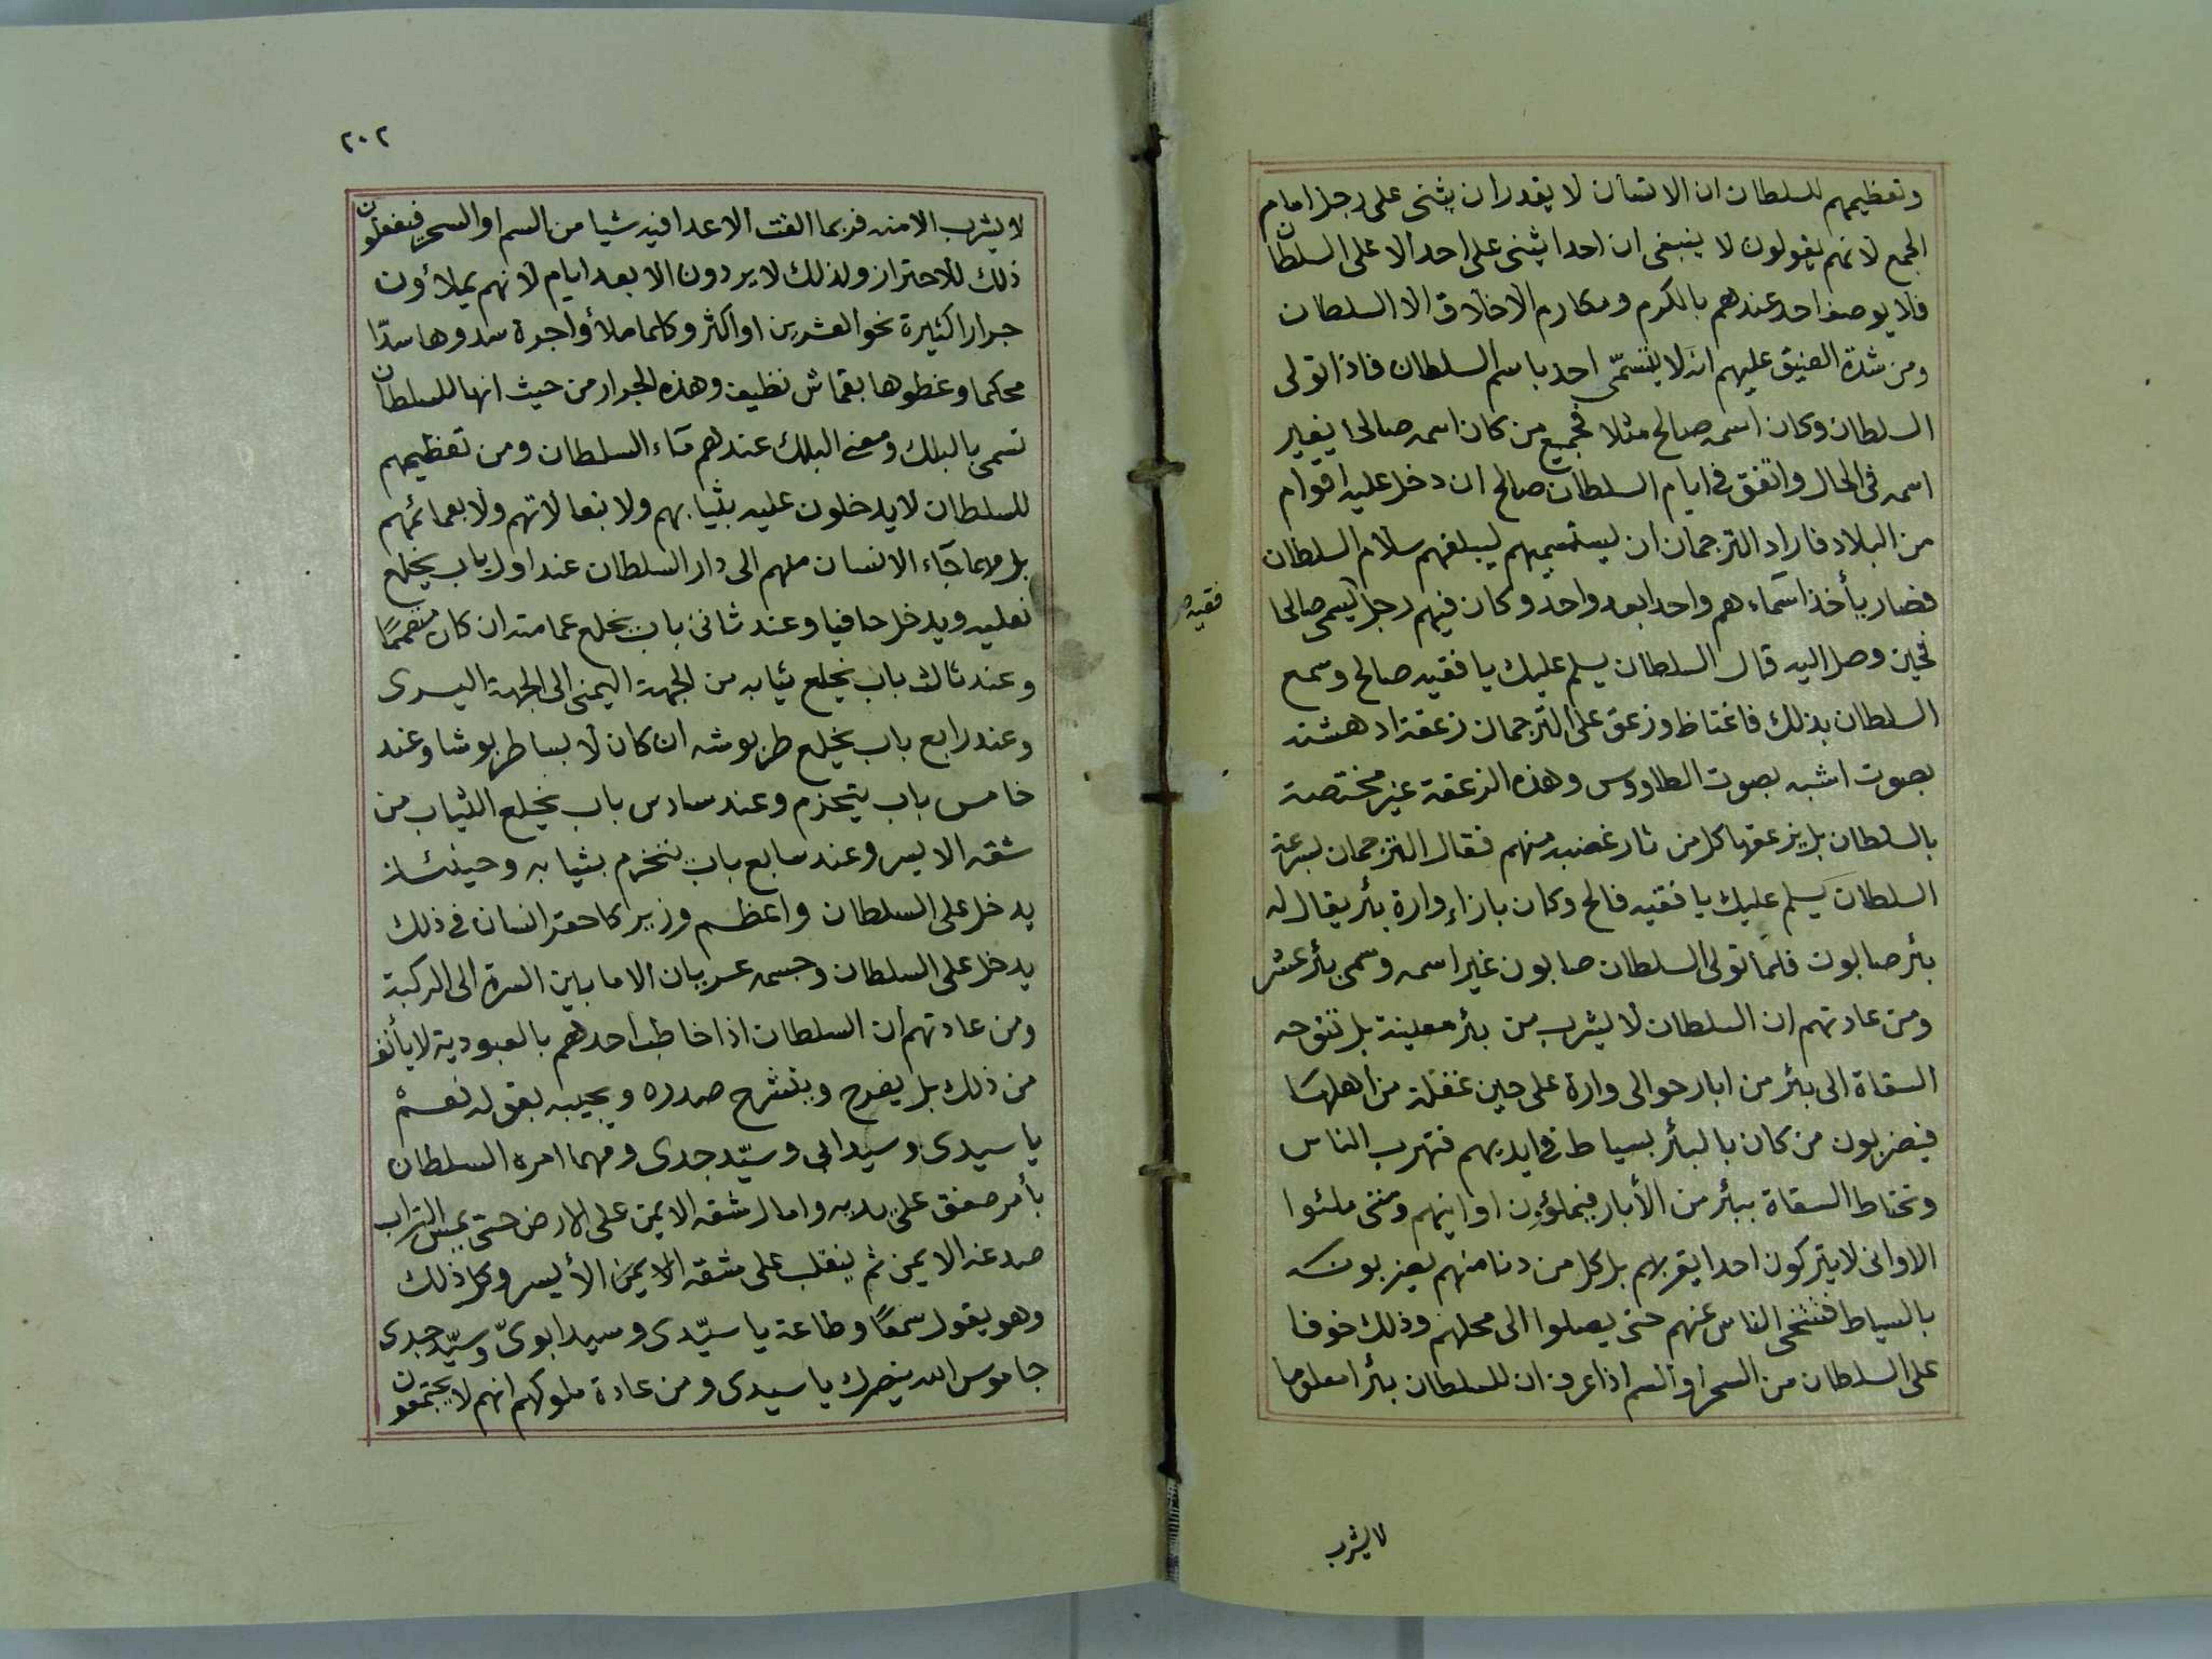 وتعظيمهم للسلطان ان الانسان لا يقدر ان يثنى على رجل امام
الجمع لانهم يقولون لا ينبغى ان احدا يثنى على احد الا على السلطان
فلا يوصف احد عندهم بالكرم ومكارم الاخلاق الا السلطان
ومن شدة الضيق عليهم انه لا يتسمّى احد باسم السلطان فاذا تولى
السلطان وكان اسمه صالح مثلا فجميع من كان اسمه صالحا يغير
اسمه فى الحال واتفق فى ايام السلطان صالح ان دخل عليه اقوام
من البلاد فاراد الترجمان ان يستسميهم ليبلغهم سلام السلطان
فصار يأخذ اسماءهم واحدا بعد واحد وكان فيهم رجل يسمى صالحا
فقيه
فحين وصل اليه قال السلطان يسلم عليك يا فقيه صالح وسمع
السلطان بذلك فاغتاظ وزعق على الترجمان زعقة ادهشته
بصوت اشبه بصوت الطاووس وهذه الزعقة غير مختصة
بالسلطان بل يزعقها كل من ثار غضبه منهم فقال الترجمان بسرعة
السلطان يسلم عليك يا فقيه فالح وكان بازاء وارة بئر يقال له
بئر صابون فلما تولى السلطان صابون غير اسمه وسمى بئر عشر
ومن عادتهم ان السلطان لا يشرب من بئر معينة بل تتوجه
السقاة الى بئر من ابار حوالى وارة على حين غفلة من اهلها
فيضربون من كان بالبئر بسياط فى ايديهم فتهرب الناس
وتحتاط السقاة ببئر من الأبار فيملؤون اوانيهم ومتى ملئوا
الاوانى لا يتركون احدا يقربهم بل كل من دنا منهم يضربونه
بالسياط فتتنحى الناس عنهم حتى يصلوا الى محلهم وذلك خوفا
على السلطان من السحر او السم اذا عرف ان للسلطان بئرا معلوما
لا يشرب
٢٠٢
لا يشرب الا منه فربما القت الاعدا فيه شيا من السم او السحر فيفعلون
ذلك للاحتراز ولذلك لا يردون الا بعد ايام لانهم يملأون
جرارا كثيرة نحو العشرين او اكثر وكلما ملأوا جرة سدوها سدّا
محكما وغطوها بقماش نظيف وهذه الجرار من حيث انها للسلطان
تسمى بالبلك ومعنى البلك عندهم ماء السلطان ومن تعظيمهم
للسلطان لا يدخلون عليه بثيابهم ولا بنعالاتهم ولا بعمائمهم
بل مهما جاء الانسان منهم الى دار السلطان عند اول باب يخلع
نعليه ويدخل حافيا وعند ثانى باب يخلع عمامته ان كان متعممًا
وعند ثالث باب يخلع ثيابه من الجهة اليمنى الى الجهة اليسرى
وعند رابع باب يخلع طربوشه ان كان لابسا طربوشا وعند
خامس باب يتحزم وعند سادس باب يخلع الثياب من
شقه الايسر وعند سابع باب يتحزم بثيابه وحينئذ
يدخل على السلطان واعظم وزير كاحقر انسان فى ذلك
يدخل على السلطان وجسمه عريان الا ما بين السرة الى الركبة
ومن عادتهم ان السلطان اذا خاطب احدهم بالعبودية لا يأنف
من ذلك بل يفرح وينشرح صدره ويجيبه بقوله نعم
يا سيدى وسيد ابى وسيّد جدى ومهما امره السلطان
بأمر صفق على يديه وامال شقه الايمن على الارض حتى يمس التراب
صدغه الايمن ثم ينقلب على شقه الايمن الأيسر وكل ذلك
وهو يقول سمعًا وطاعة يا سيّدى وسيد ابوىّ وسيّد جدى
جاموس الله ينصرك يا سيدى ومن عادة ملوكهم انهم لا يجتمعون